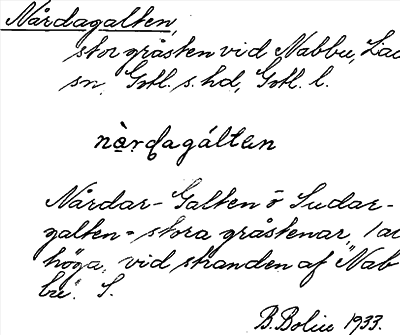 Nårdagalten,
stor gråsten vid Nabbu, Lau
sn, Gotl. s. hd, Gotl. l.
nà̱rdagálten
Nårdar-Galten o Sudar-
galten = stora gråstenar,
höga, vid stranden af "Nab
bu". S.
B. Bolin 1933.